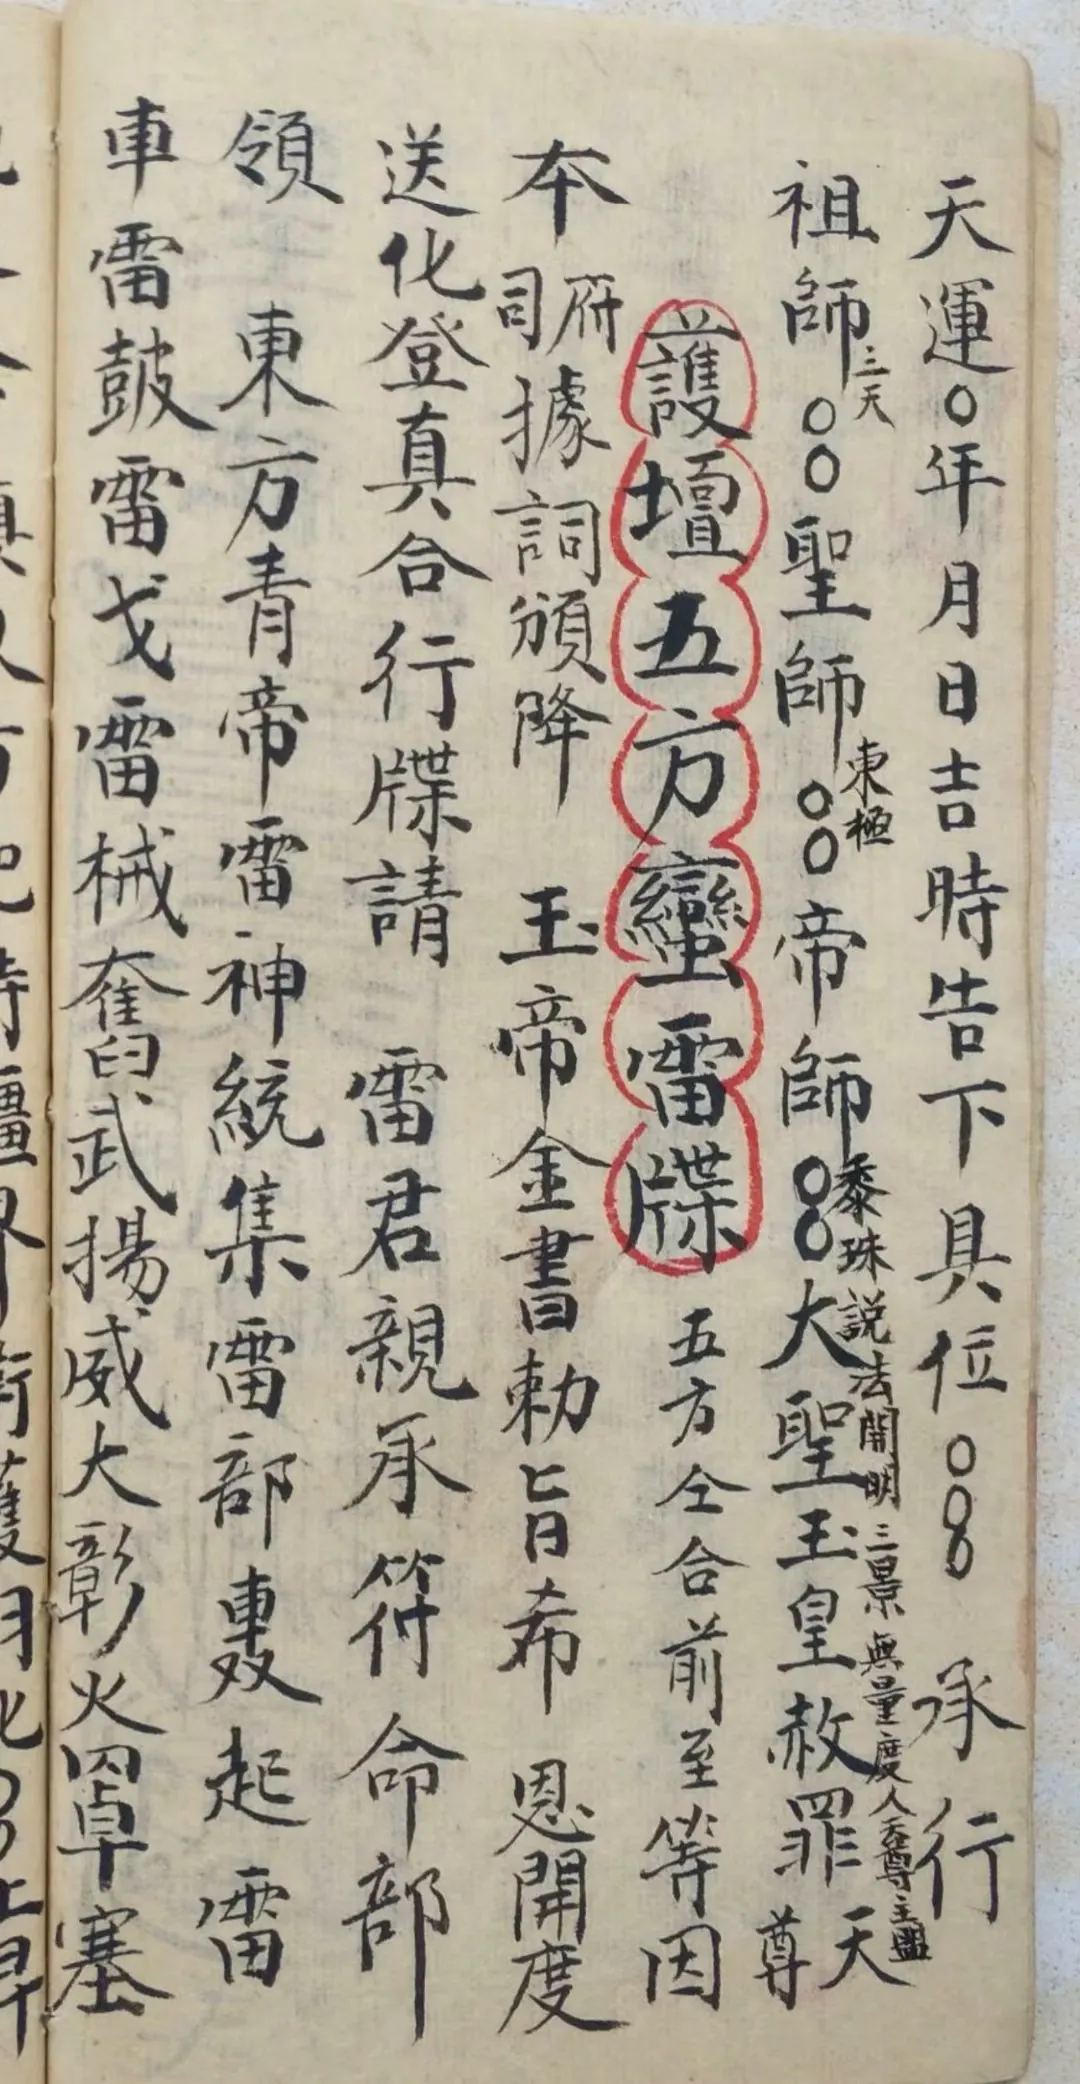 天運〇年月日吉時告下具位〇〇〇承行
祖師三天〇〇聖師東極〇〇帝師〇〇大聖玉皇赦罪天尊
黍珠説法開明三景無量度人天尊主盟
護壇五方蠻雷牒 五方仝合前至等因
本府司據詞頒降 玉帝金書勅旨希 恩開度
送化登真合行牒請 雷君親承符命部
領 東方青帝雷神統集雷部轟起雷
車雷鼓雷戈雷械奮武揚威大彰火罩塞